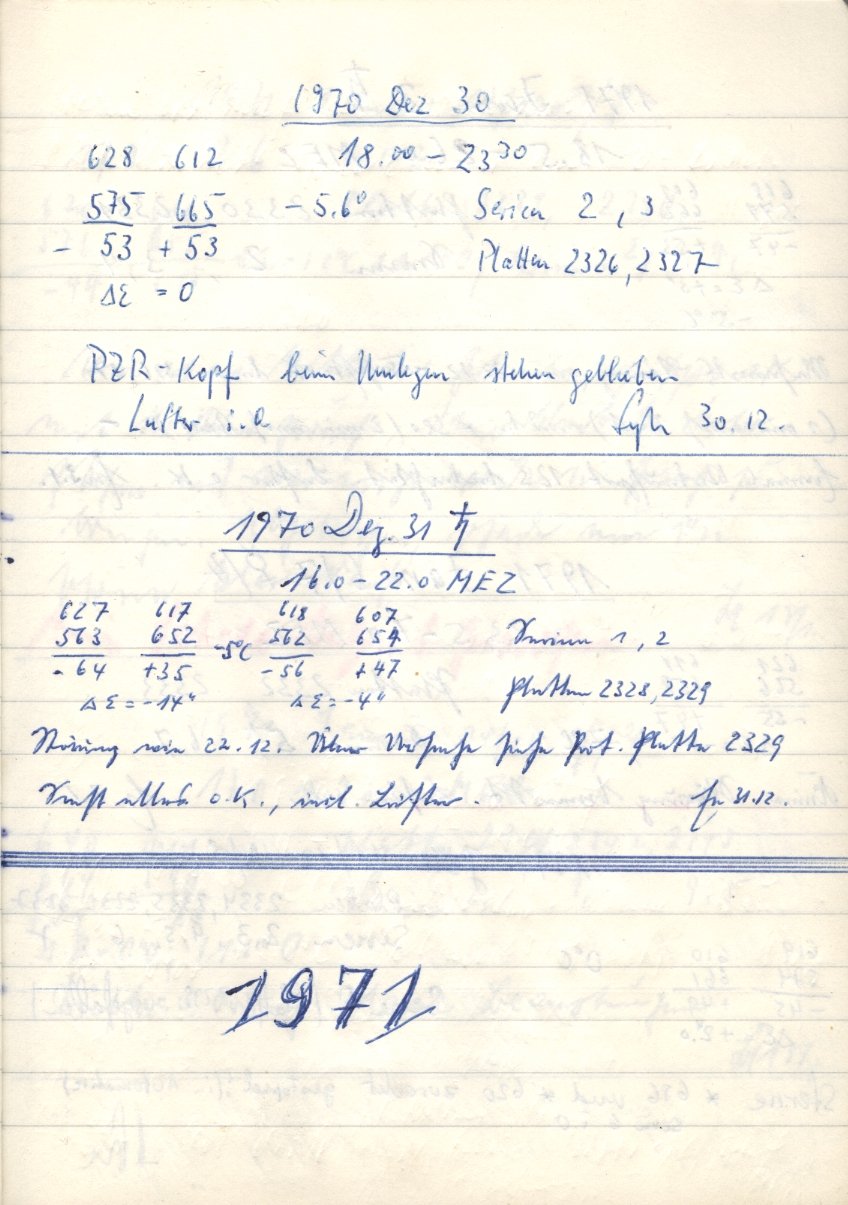 1970 Dez 30
628 612 18.00 – 23 30
575 665 – 5.6° Serien 2, 3
– 53 + 53 Platten 2326, 2327
Δε = 0
PZR-Kopf beim Umlegen stehen geblieben
Lüfter i.O. 30.12.
1970 Dez. 31 ♄
16.0 – 22.0 MEZ
627 617 618 607
563 652 -5°C 562 654 Serien 1, 2
- 64 +35 -56 +47
Δε = -14" Δε = -4" Platten 2328, 2329
Störung wie 22.12. Über Ursache siehe Prot. Platte 2329
Sonst alles o.K., incl. Lüfter. 31.12.
1971